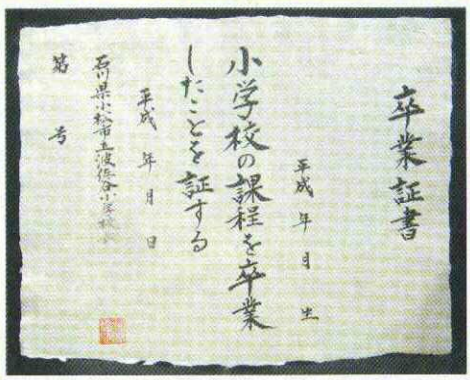 卒業証書
平成 年 月 生
小学校の課程を卒業
したことを証する
平成 年 月 日
石川県小松市立波佐谷小学校長
第 号